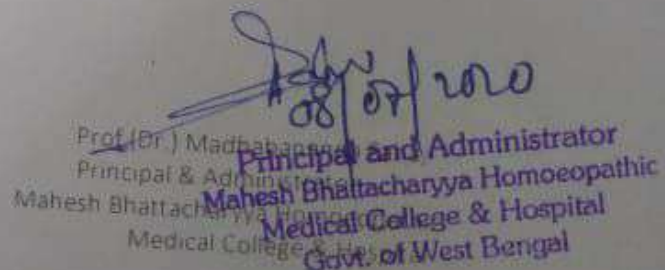 08/07/2020
Prof.(Dr.)
Principal & Administrator
Mahesh Bhattacharyya
Medical College &
Principal and Administrator
Mahesh Bhattacharyya Homoeopathic
Medical College & Hospital
Govt. of West Bengal